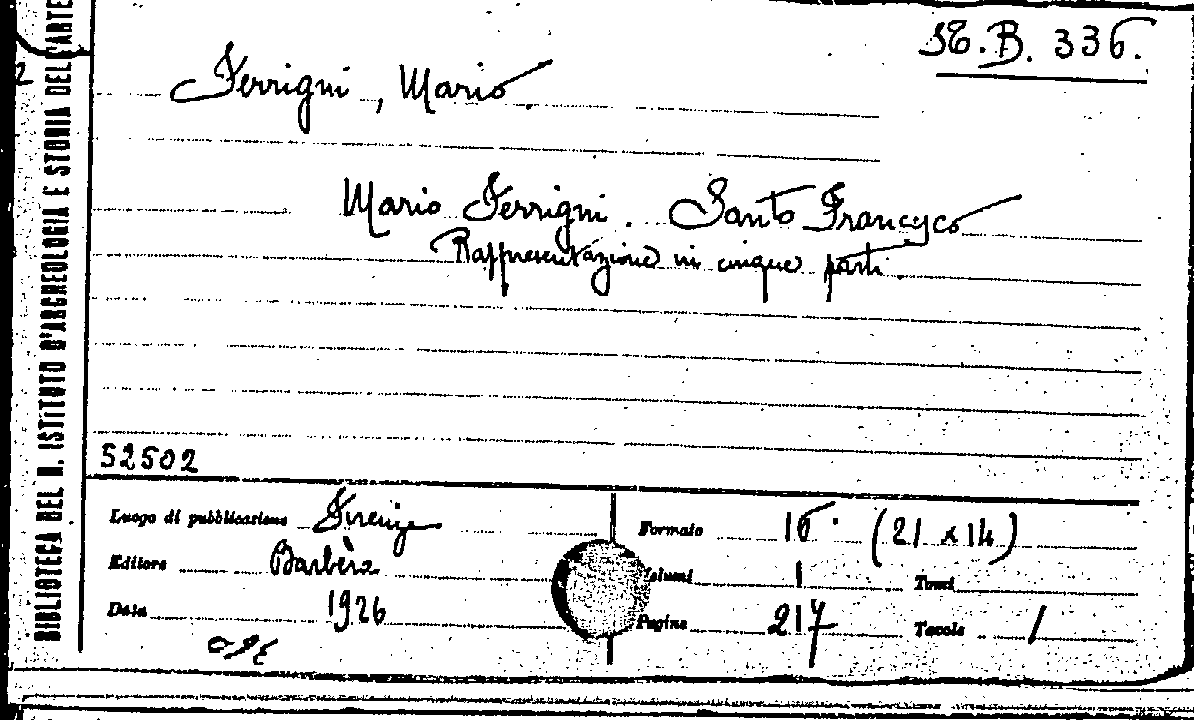 BIBLIOTECA DEL R. ISTITUTO D'ARCHEOLOGIA E STORIA DELL'ARTE
B. 336.
Ferrigni, Mario.
Mario Ferrigni. Santo Francesco
Rappresentazione in cinque parti.
52502
Luogo di pubblicazione Firenze
Editore Barbèra
Data 1926
Formato 16° (21 x 14)
Volumi 1 Tomi
Pagine 217 Tavole /